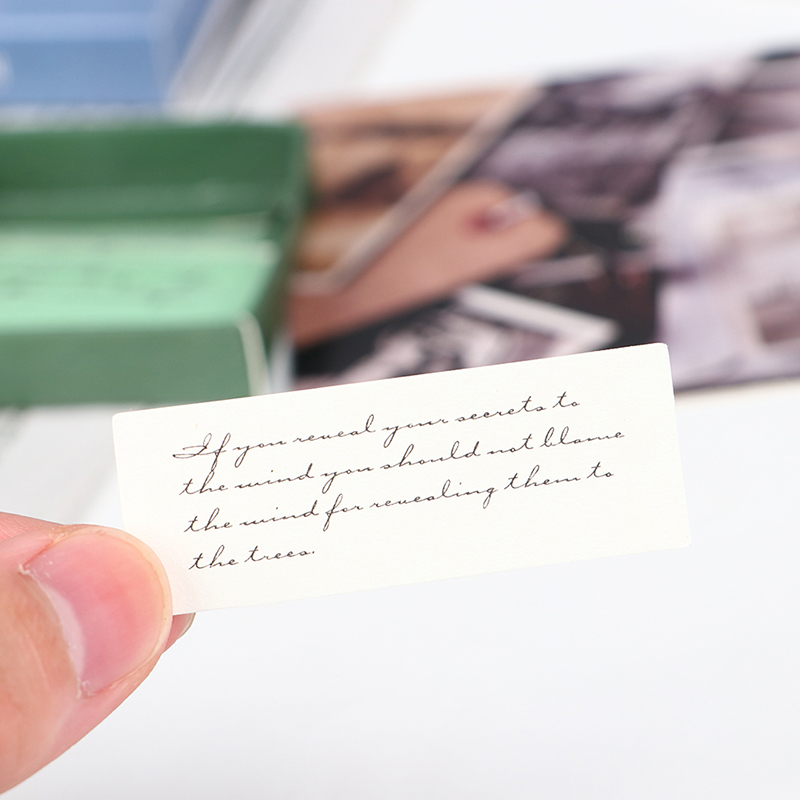 If you reveal your secrets to
the wind you should not blame
the wind for revealing them to
the trees.